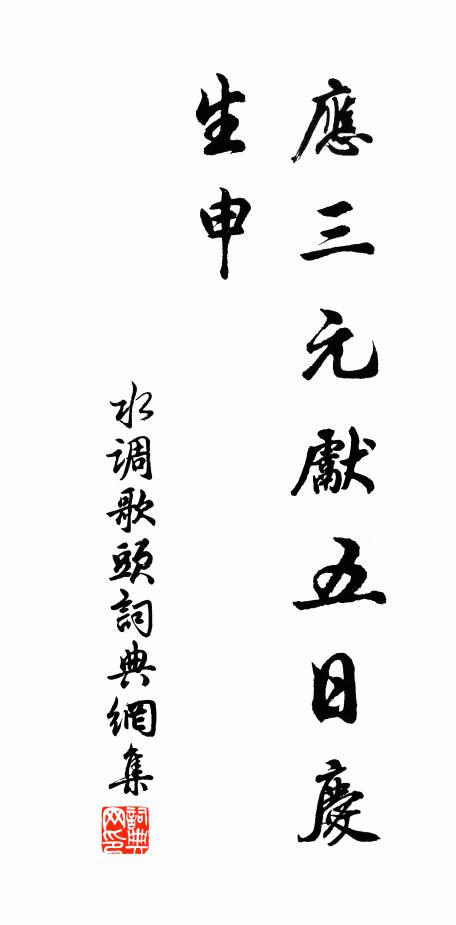 應三元獻五日慶
生申
水调歌頭詞典網集
詞典网印